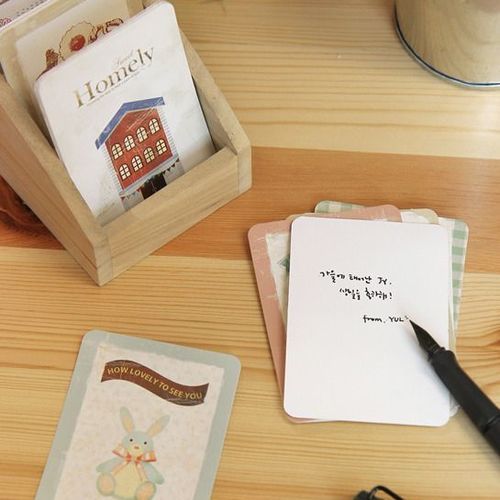 Sweet
Homely
가을에 태어난 JY,
생일을 축하해!
from. YUL
HOW LOVELY TO SEE YOU